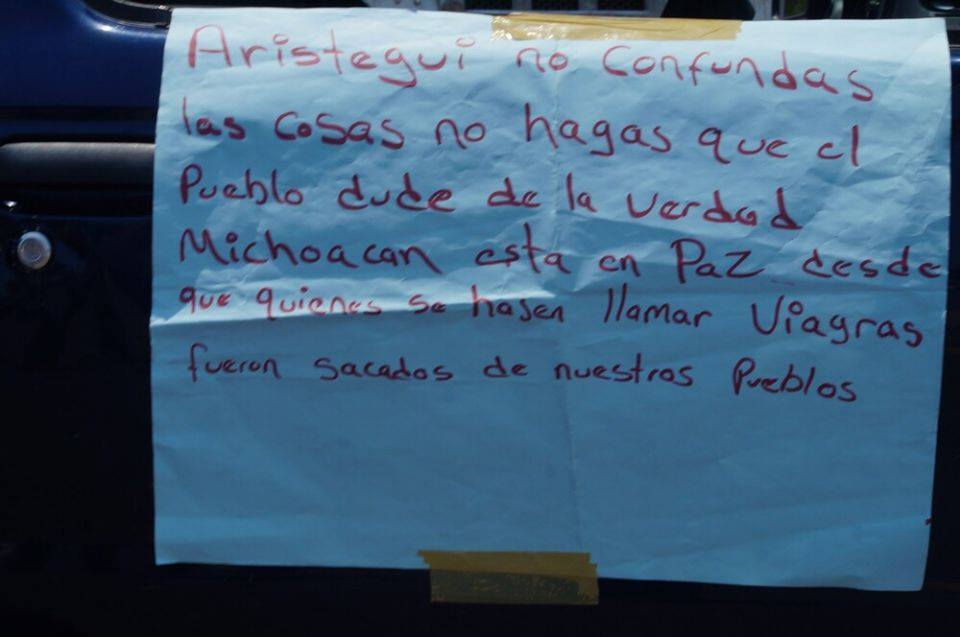 Aristegui no Confundas
las cosas no hagas que el
Pueblo dude de la verdad
Michoacan esta en Paz desde
que quienes se hasen llamar Viagras
fueron sacados de nuestros Pueblos